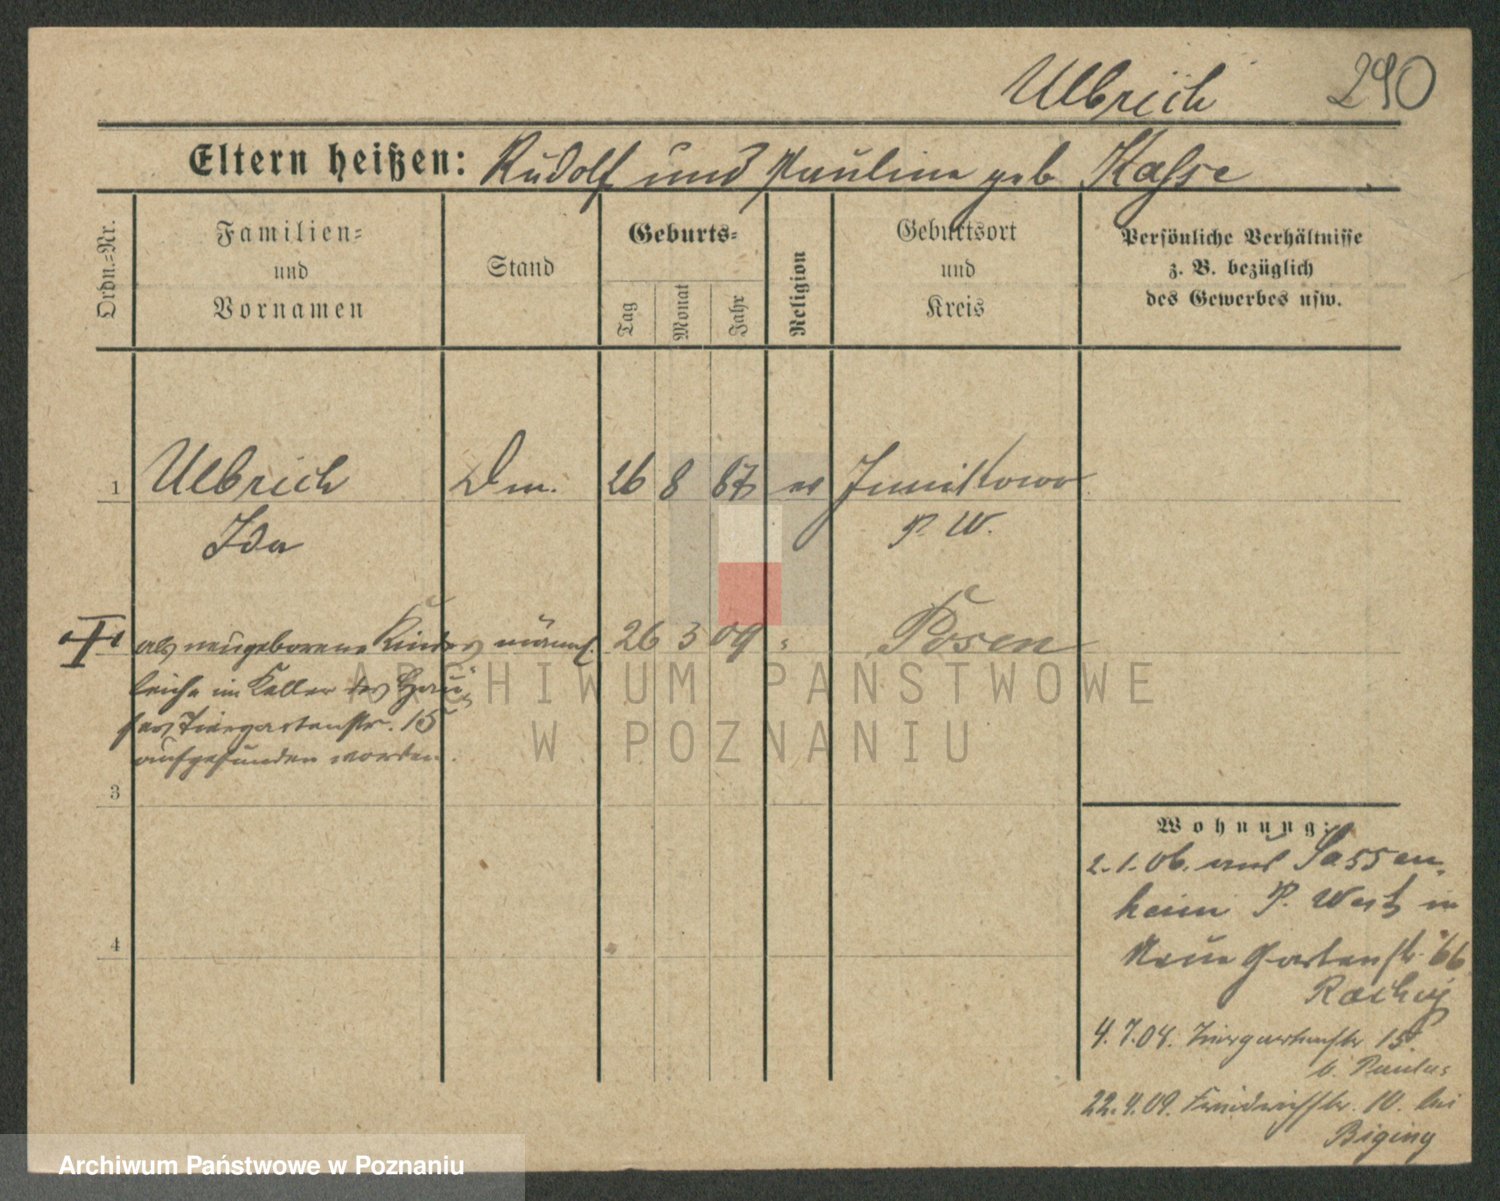 Ulbrich 290
Eltern heißen: Rudolf und Pauline geb Hasse
Ordn.-Nr.
Familien-
und
Vornamen
Stand
Geburts-
Tag
Monat
Jahr
Religion
Geburtsort
und
Kreis
Persönliche Verhältnisse
z. B. bezüglich
des Gewerbes usw.
1 Ulbrich Dm. 26 8 87 ev
Ida P. W.
als neugeborene Kindes männl. 26 3 09 " Posen
leiche im Keller des Hau-
ses Tiergartenstr. 15
aufgefunden worden.
3
4
Wohnung:
2.1.06. aus Sassen-
heim P. West in
Neue Gartenstr. 66
4.7.08. Tiergartenstr 15
b. Paulus
22.4.09. Friedrichstr. 10. bei
ARCHIWUM PAŃSTWOWE
W POZNANIU
Archiwum Państwowe w Poznaniu